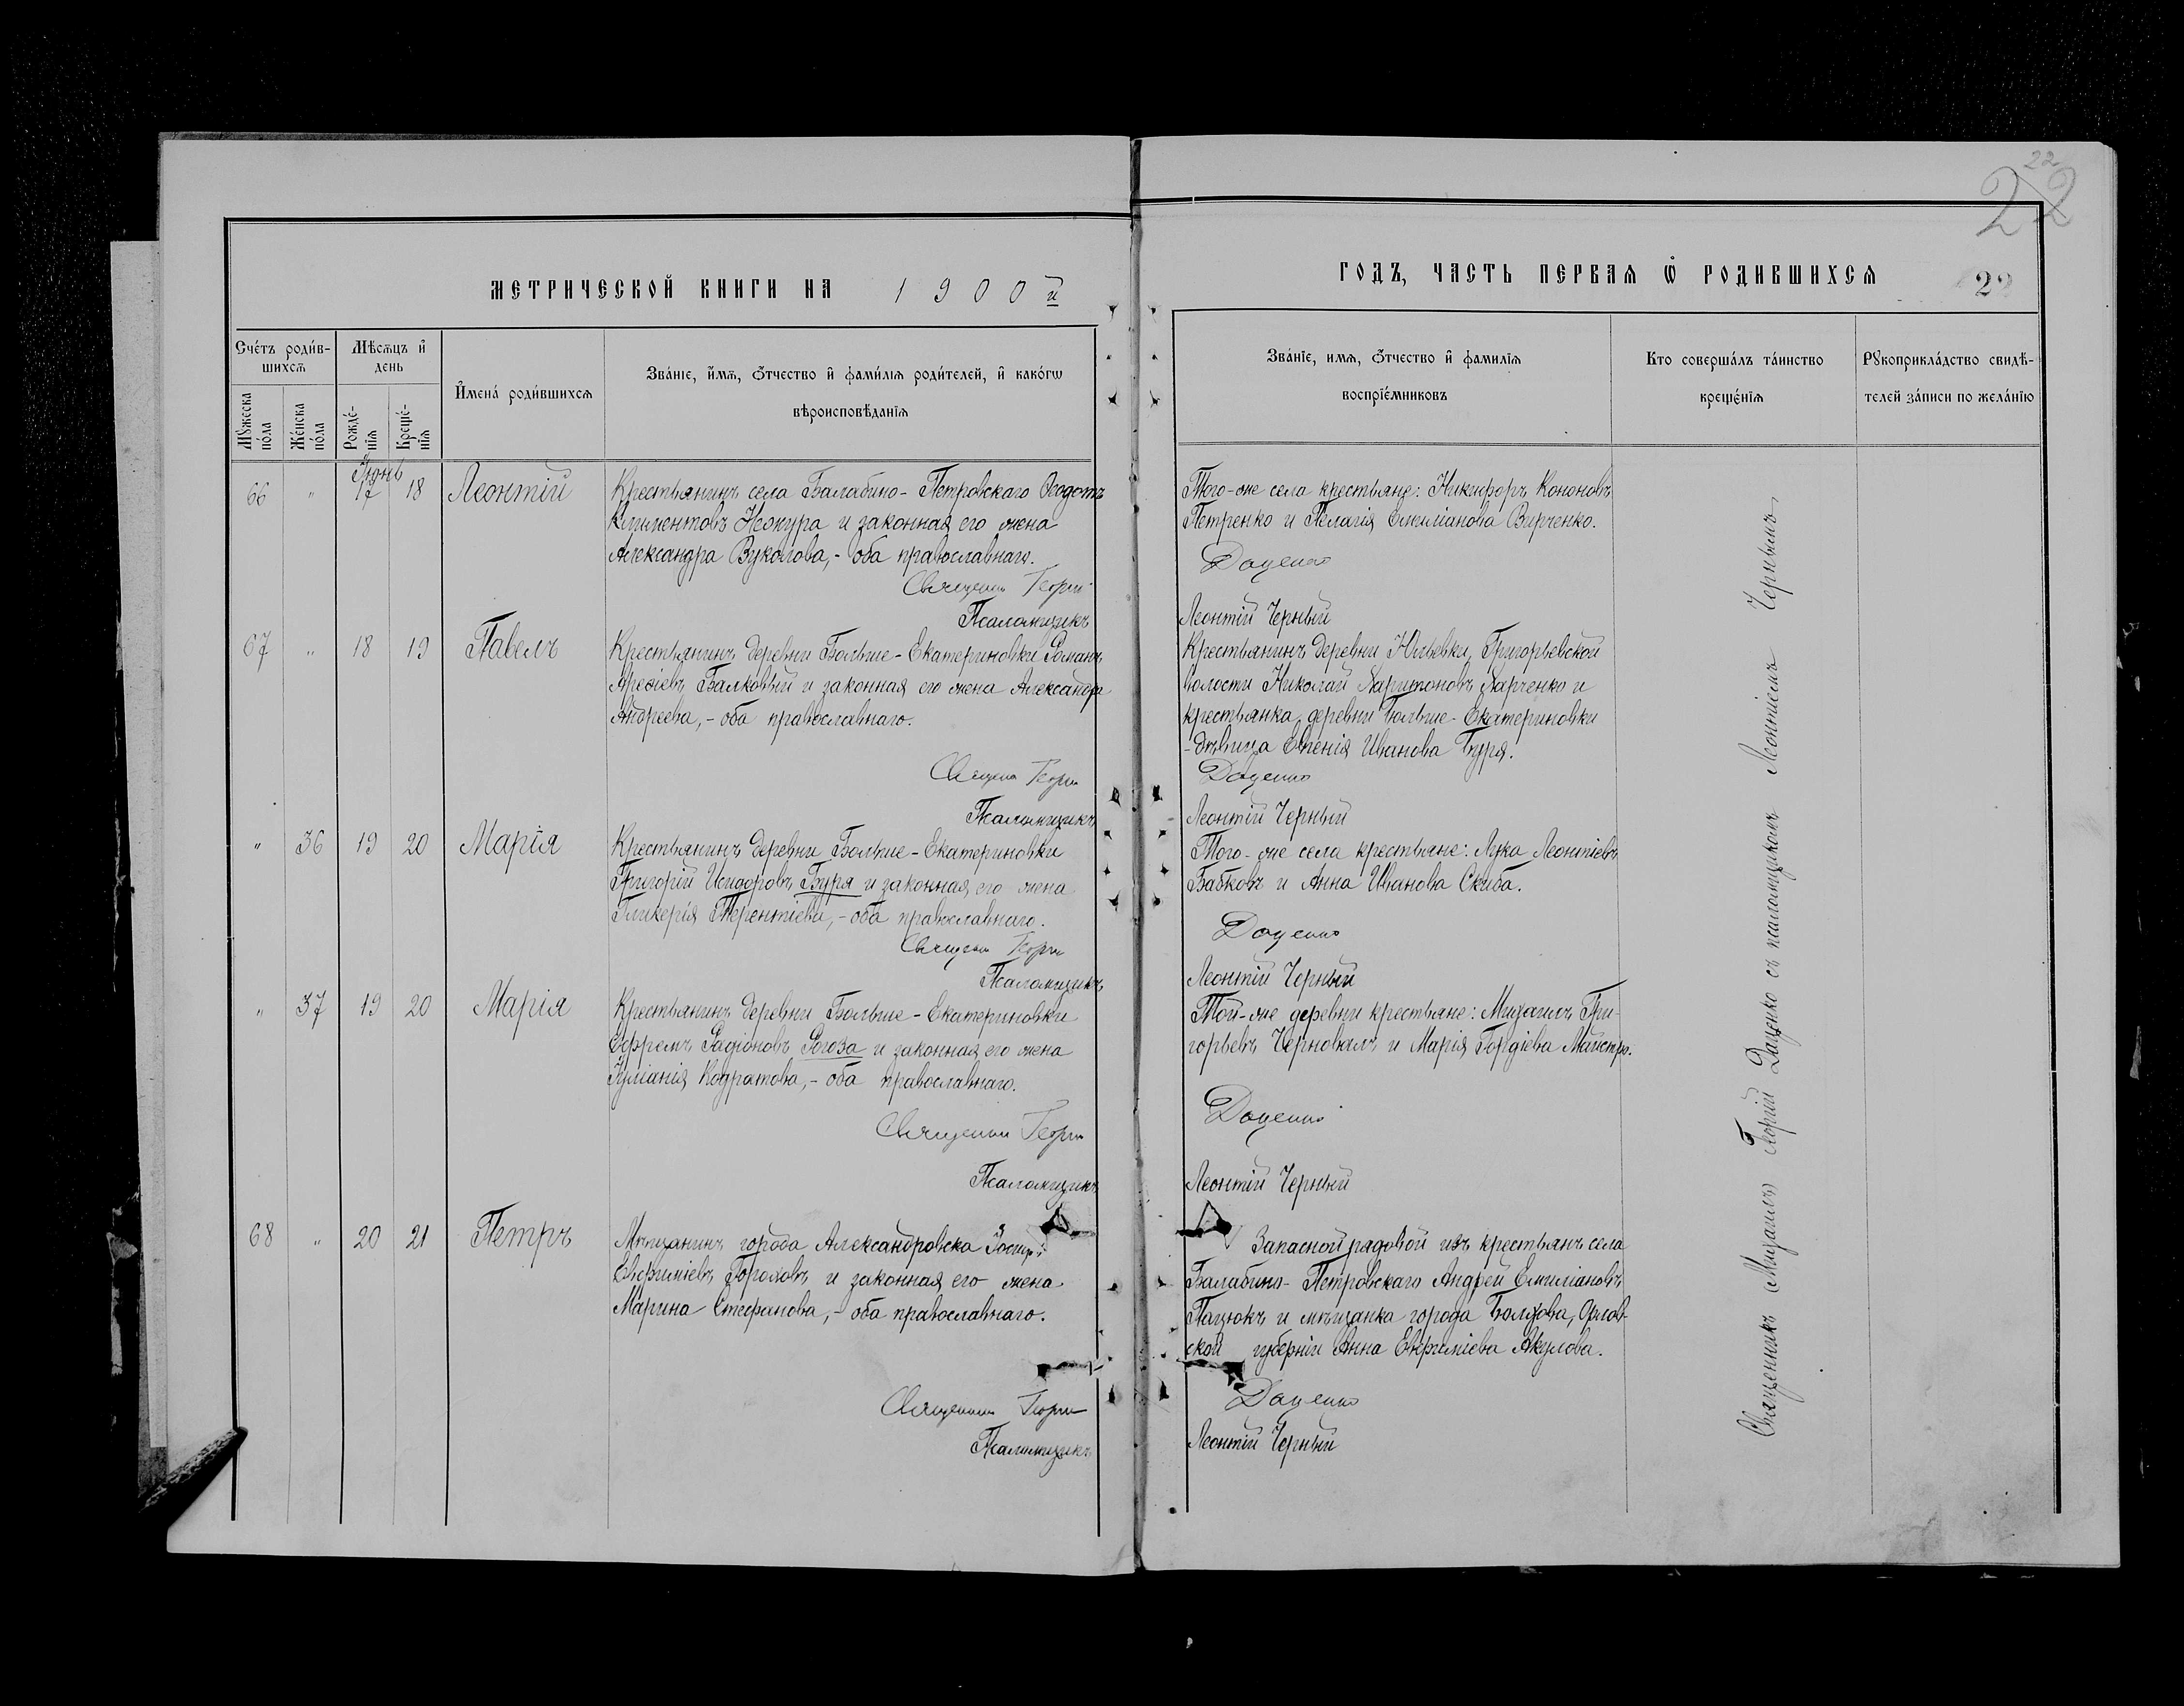 22
22
МЕТРИЧЕСКОЙ КНИГИ НА 1900й
ГОДЪ, ЧАСТЬ ПЕРВАЯ Ѡ РОДИВШИХСЯ
22
Счетъ родив-
шихся
Мужеска
пола
Женска
пола
Мѣсяцъ и
день
Рожде-
нія
Креще-
нія
Имена родившихся
Званіе, имя, отчество и фамилія родителей, и какогѡ
вѣроисповѣданія
Званіе, имя, отчество и фамилія
воспріемниковъ
Кто совершалъ таинство
крещенія
Рукоприкладство свидѣ-
телей записи по желанію
Іюнь
66 " 17 18 Леонтій
Крестьянинъ села Балабино-Петровскаго Ѳеодотъ
Климентовъ и законная его жена
Александра Вуколова,- оба православнаго.
Священник Георгій
Псаломщикъ
Того-же села крестьяне: Никифоръ Кононовъ
Петренко и Пелагія Емиліанова Вирченко.
Даценко
Леонтій Черный
67 " 18 19 Павелъ
Крестьянинъ деревни Больше-Екатериновки Романъ
Балковый и законная его жена Александра
Андреева,- оба православнаго.
Священ Георги
Псаломщикъ
Крестьянинъ деревни Юльевки, Григорьевской
волости Николай Харитоновъ Харченко и
крестьянка деревни Больше-Екатериновки
-дѣвица Евгенія Иванова Буря.
Даценко
Леонтій Черный
" 36 19 20 Марія
Крестьянинъ деревни Больше-Екатериновки
Григорій Исидоровъ Буря и законная его жена
Гликерія Терентіева,- оба православнаго.
Священ Георги
Псаломщикъ
Того-же села крестьяне: Лука Леонтіевъ
Бабковъ и Анна Иванова Скиба.
Даценко
Леонтій Черный
" 37 19 20 Марія
Крестьянинъ деревни Больше-Екатериновки
Ефремъ Радіоновъ Рогоза и законная его жена
Іуліанія Кодратова,- оба православнаго.
Священник Георги
Псаломщикъ
Той-же деревни крестьяне: Михаилъ Гри-
горьевъ Черновалъ и Марія Гордіева Майстро.
Даценко
Леонтій Черный
68 " 20 21 Петръ
Мѣщанинъ города Александровска
Евфиміевъ Гороховъ и законная его жена
Марина Стефанова,- оба православнаго.
Священник Георги
Псаломщикъ
Запасной рядовой изъ крестьянъ села
Балабино-Петровскаго Андрей Емиліановъ
Пацюкъ и мѣщанка города Болхова, Орлов-
ской губерніи Анна Евфиміева Акулова.
Даценко
Леонтій Черный
Священникъ Михаилъ Георгій Даценко съ псаломщикомъ Леонтіемъ Чернымъ